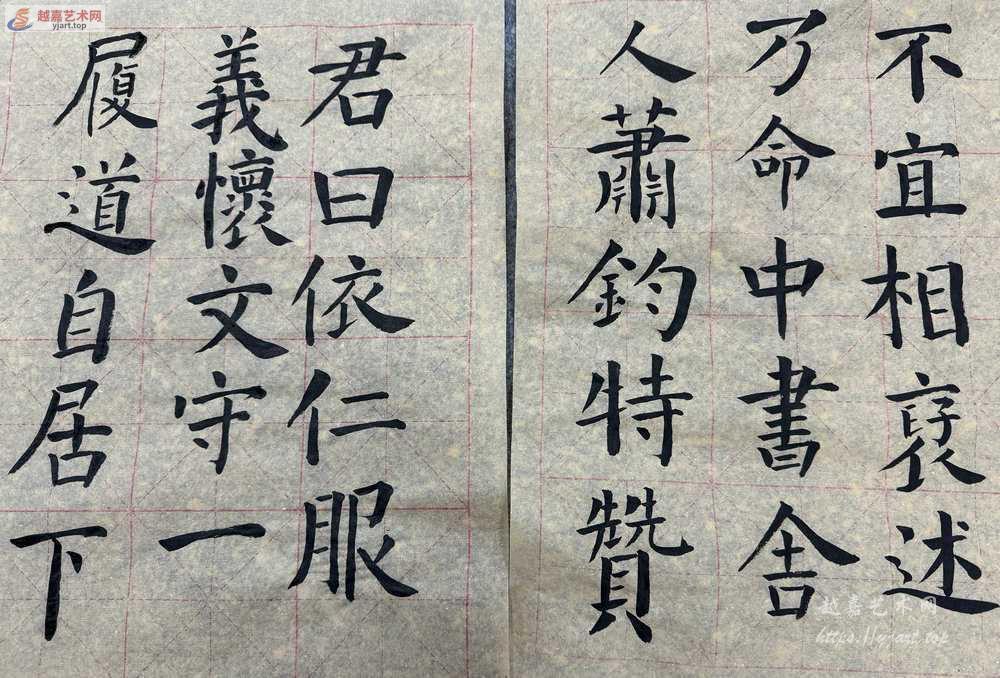 不宜相褒述
乃命中書舍
人蕭鈞特贊
君曰依仁服
義懷文守一
履道自居下
越嘉艺术网
yjart.top
越嘉艺术网
https://yjart.top